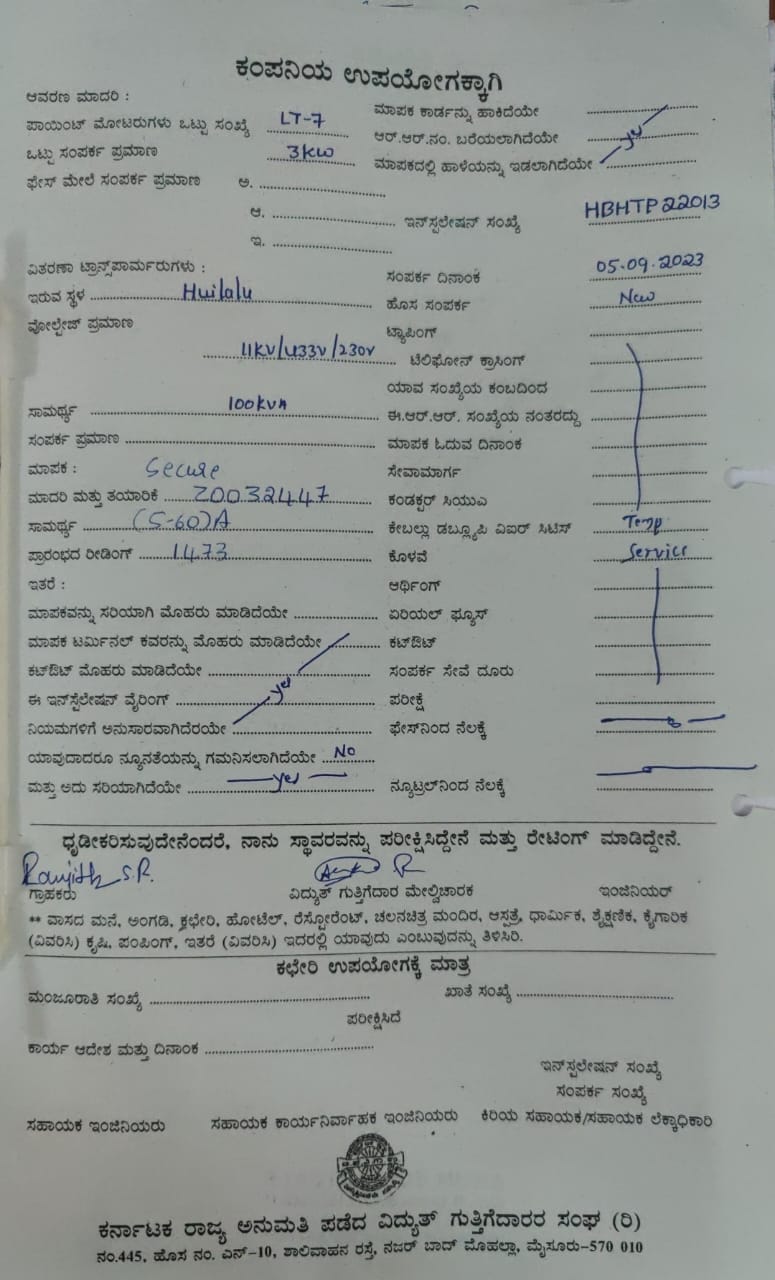 ಕಂಪನಿಯ ಉಪಯೋಗಕ್ಕಾಗಿ
ಆವರಣ ಮಾದರಿ :
ಮಾಪಕ ಕಾರ್ಡನ್ನು ಹಾಕಿದೆಯೇ
ಪಾಯಿಂಟ್ ಮೋಟರುಗಳು ಒಟ್ಟು ಸಂಖ್ಯೆ LT-7
ಆರ್.ಆರ್.ನಂ. ಬರೆಯಲಾಗಿದೆಯೇ yes
ಒಟ್ಟು ಸಂಪರ್ಕ ಪ್ರಮಾಣ 3kw
ಮಾಪಕದಲ್ಲಿ ಹಾಳೆಯನ್ನು ಇಡಲಾಗಿದೆಯೇ
ಫೇಸ್ ಮೇಲೆ ಸಂಪರ್ಕ ಪ್ರಮಾಣ ಅ.
ಆ.
ಇನ್‌ಸ್ಪಲೇಷನ್ ಸಂಖ್ಯೆ HBHTP22013
ಇ.
ವಿತರಣಾ ಟ್ರಾನ್ಸ್‌ಫಾರ್ಮರುಗಳು :
ಸಂಪರ್ಕ ದಿನಾಂಕ 05.09.2023
ಇರುವ ಸ್ಥಳ Huilalu
ಹೊಸ ಸಂಪರ್ಕ New
ವೋಲ್ಟೇಜ್ ಪ್ರಮಾಣ
ಟ್ಯಾಪಿಂಗ್
11KV/433V/230V
ಟೆಲಿಫೋನ್ ಕ್ರಾಸಿಂಗ್
ಯಾವ ಸಂಖ್ಯೆಯ ಕಂಬದಿಂದ
ಸಾಮರ್ಥ್ಯ 100kVA
ಈ.ಆರ್.ಆರ್. ಸಂಖ್ಯೆಯ ನಂತರದ್ದು
ಸಂಪರ್ಕ ಪ್ರಮಾಣ
ಮಾಪಕ ಓದುವ ದಿನಾಂಕ
ಮಾಪಕ : Secure
ಸೇವಾಮಾರ್ಗ
ಮಾದರಿ ಮತ್ತು ತಯಾರಿಕೆ 20032447
ಕಂಡಕ್ಟರ್ ಸಿಯುಎ
ಸಾಮರ್ಥ್ಯ (5-60)A
ಕೇಬಲ್ಲು ಡಬ್ಲ್ಯೂಪಿ ವಿಐಆರ್ ಸಿಟಿಸ್ Temp
ಪ್ರಾರಂಭದ ರೀಡಿಂಗ್ 1473
ಕೊಳವೆ Service
ಇತರೆ :
ಆರ್ಥಿಂಗ್
ಮಾಪಕವನ್ನು ಸರಿಯಾಗಿ ಮೊಹರು ಮಾಡಿದೆಯೇ
ಏರಿಯಲ್ ಫ್ಯೂಸ್
ಮಾಪಕ ಟರ್ಮಿನಲ್ ಕವರನ್ನು ಮೊಹರು ಮಾಡಿದೆಯೇ
ಕಟ್‌ಔಟ್
ಕಟ್‌ಔಟ್ ಮೊಹರು ಮಾಡಿದೆಯೇ
ಸಂಪರ್ಕ ಸೇವೆ ದೂರು
ಈ ಇನ್‌ಸ್ಟೆಲೇಷನ್ ವೈರಿಂಗ್ yes
ಪರೀಕ್ಷೆ
ನಿಯಮಗಳಿಗೆ ಅನುಸಾರವಾಗಿದೆರಯೇ
ಫೇಸ್‌ನಿಂದ ನೆಲಕ್ಕೆ
ಯಾವುದಾದರೂ ನ್ಯೂನತೆಯನ್ನು ಗಮನಿಸಲಾಗಿದೆಯೇ No
ಮತ್ತು ಅದು ಸರಿಯಾಗಿದೆಯೇ yes
ನ್ಯೂಟ್ರಲ್‌ನಿಂದ ನೆಲಕ್ಕೆ
ಧೃಡೀಕರಿಸುವುದೇನೆಂದರೆ, ನಾನು ಸ್ಥಾವರವನ್ನು ಪರೀಕ್ಷಿಸಿದ್ದೇನೆ ಮತ್ತು ರೇಟಿಂಗ್ ಮಾಡಿದ್ದೇನೆ.
Ranjith S.R.
ಗ್ರಾಹಕರು ವಿದ್ಯುತ್ ಗುತ್ತಿಗೆದಾರ ಮೇಲ್ವಿಚಾರಕ ಇಂಜಿನಿಯರ್
** ವಾಸದ ಮನೆ, ಅಂಗಡಿ, ಕ್ಛಭೇರಿ, ಹೋಟೆಲ್, ರೆಸ್ಟೋರೆಂಟ್, ಚಲನಚಿತ್ರ ಮಂದಿರ, ಆಸ್ಪತ್ರೆ, ಧಾರ್ಮಿಕ, ಶೈಕ್ಷಣಿಕ, ಕೈಗಾರಿಕ
(ವಿವರಿಸಿ) ಕೃಷಿ, ಪಂಪಿಂಗ್, ಇತರೆ (ವಿವರಿಸಿ) ಇದರಲ್ಲಿ ಯಾವುದು ಎಂಬುವುದನ್ನು ತಿಳಿಸಿರಿ.
ಕಛೇರಿ ಉಪಯೋಗಕ್ಕೆ ಮಾತ್ರ
ಮಂಜೂರಾತಿ ಸಂಖ್ಯೆ ಖಾತೆ ಸಂಖ್ಯೆ
ಪರೀಕ್ಷಿಸಿದೆ
ಕಾರ್ಯ ಆದೇಶ ಮತ್ತು ದಿನಾಂಕ
ಇನ್‌ಸ್ಪಲೇಷನ್ ಸಂಖ್ಯೆ
ಸಂಪರ್ಕ ಸಂಖ್ಯೆ
ಸಹಾಯಕ ಇಂಜಿನಿಯರು ಸಹಾಯಕ ಕಾರ್ಯನಿರ್ವಾಹಕ ಇಂಜಿನಿಯರು ಕಿರಿಯ ಸಹಾಯಕ/ಸಹಾಯಕ ಲೆಕ್ಕಾಧಿಕಾರಿ
ಕರ್ನಾಟಕ ರಾಜ್ಯ ಅನುಮತಿ ಪಡೆದ ವಿದ್ಯುತ್ ಗುತ್ತಿಗೆದಾರರ ಸಂಘ (ರಿ)
ನಂ.445, ಹೊಸ ನಂ. ಎನ್-10, ಶಾಲಿವಾಹನ ರಸ್ತೆ, ನಜರ್ ಬಾದ್ ಮೊಹಲ್ಲಾ, ಮೈಸೂರು-570 010